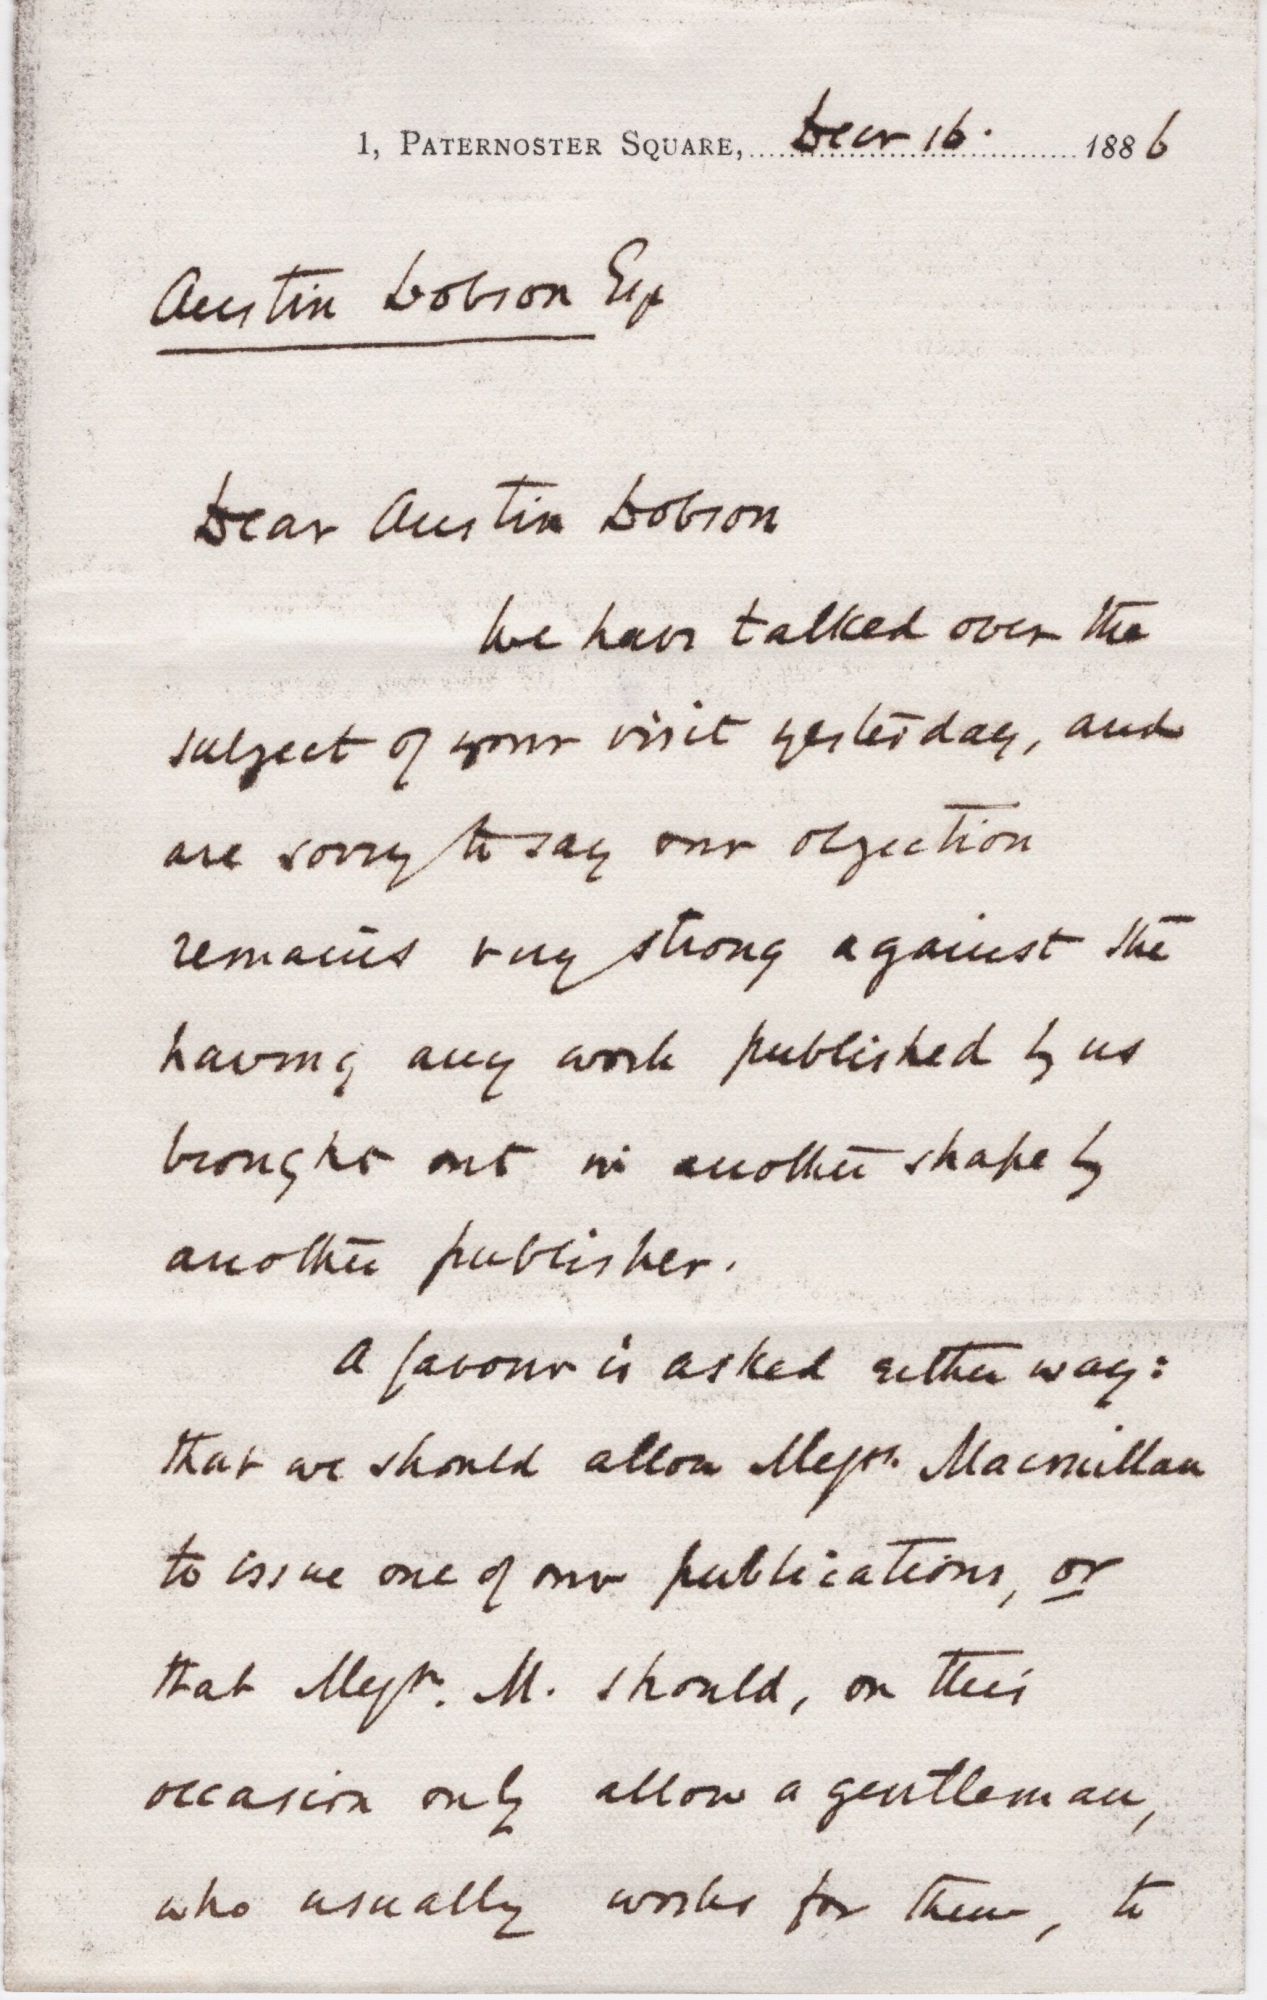 1, PATERNOSTER SQUARE, Decr 16. 1886
Austin Dobson Esq
Dear Austin Dobson
We have talked over the
subject of your visit yesterday, and
are sorry to say our objection
remains very strong against the
having any work published by us
brought out in another shape by
another publisher.
A favour is asked either way:
that we should allow Messrs. Macmillan
to issue one of our publications, or
that Messrs. M. should, on this
occasion only allow a gentleman,
who usually works for them, to